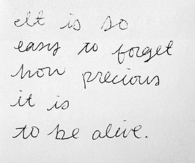 It is so
easy to forget
how precious
it is
to be alive.